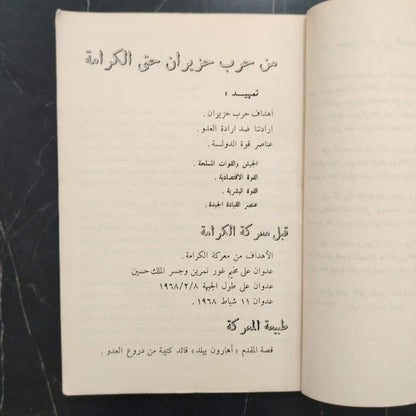 من حرب حزيران حتى الكرامة
تمهيد :
أهداف حرب حزيران .
ارادتنا ضد ارادة العدو .
عناصر قوة الدولة .
الجيش والقوات المسلحة .
القوة الاقتصادية .
القوة البشرية .
عنصر القيادة الجيدة .
قبل معركة الكرامة
الأهداف من معركة الكرامة .
عدوان على مخيم غور نمرين وجسر الملك حسين
عدوان على طول الجبهة ١٩٦٨/٢/٨
عدوان ١١ شباط ١٩٦٨ .
طبيعة المعركة
قصة المقدم « أهارون بيلد » قائد كتيبة من دروع العدو .